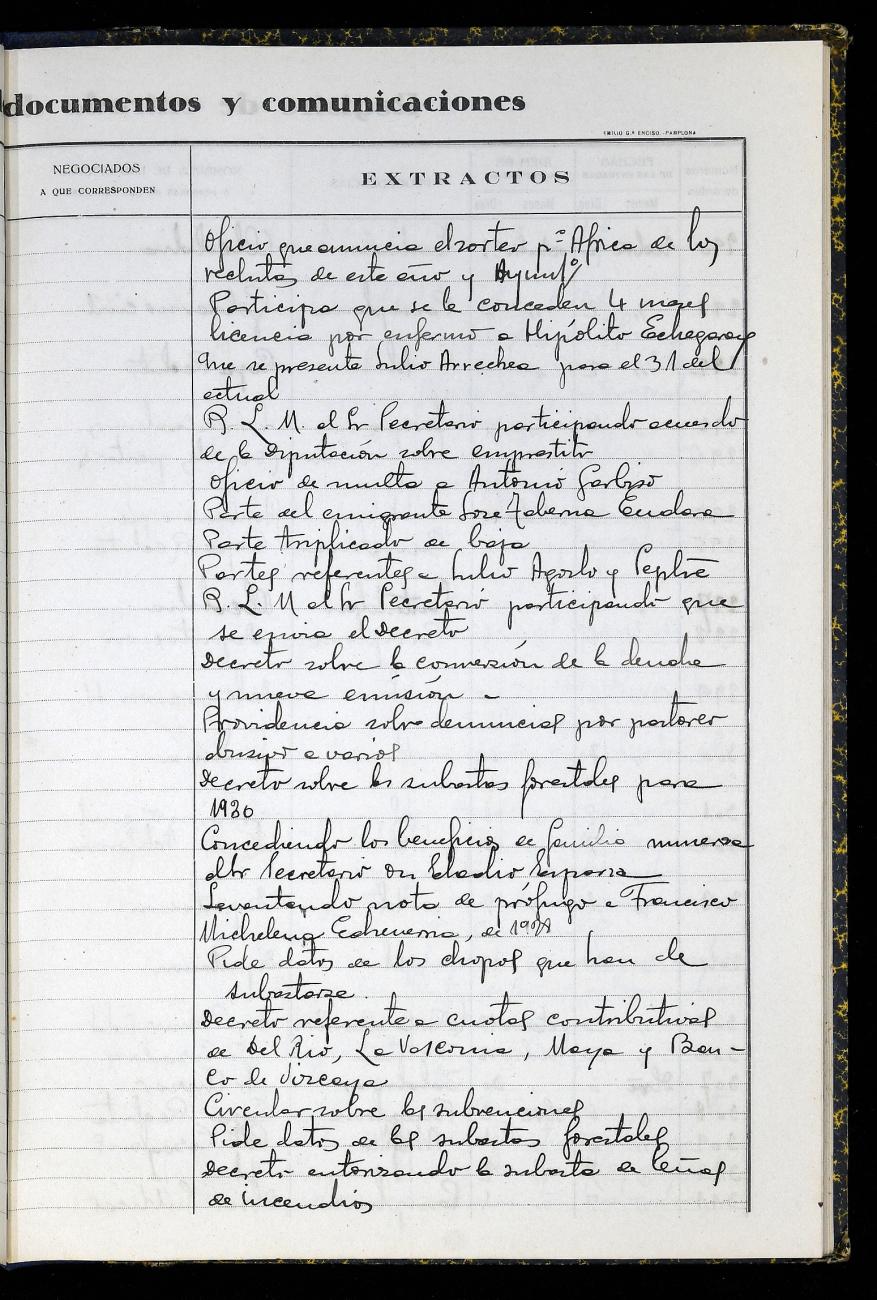 documentos y comunicaciones
EMILIO G.ª ENCISO.-PAMPLONA
NEGOCIADOS
A QUE CORRESPONDEN
EXTRACTOS
Oficio que anuncia el sorteo pª Africa de los
reclutas de este año y Ayuntº
Participa que se le conceden 4 meses
licencia por enfermo a Hipólito Echegaray
Que se presente Julio Arrechea para el 31 del
actual
B. L. M. al Sr Secretario participando acuerdo
de la Diputación sobre empréstito
Oficio de multa a Antonio Garbiso
Parte del emigrante José Taberna Endara
Parte triplicado de baja
Partes referentes a Julio Agosto y Septre
B. L. M al Sr Secretario participando que
se envia el Decreto
Decreto sobre la conversión de la deuda
y nueva emisión -
Providencia sobre denuncias por pastoreo
abusivo a varios
Decreto sobre las subastas forestales para
1930
Concediendo los beneficios de familia numerosa
al Sr Secretario Dn Eladio Esparza
Levantando nota de prófugo a Francisco
Michelena Echeverria, de
Pide datos de los chopos que han de
subastarse.
Decreto referente a cuotas contributivas
de Del Rio, La Vasconia, Maya y Ban-
co de Vizcaya
Circular sobre las subvenciones
Pide datos de las subastas forestales
Decreto autorizando la subasta de leñas
de incendios